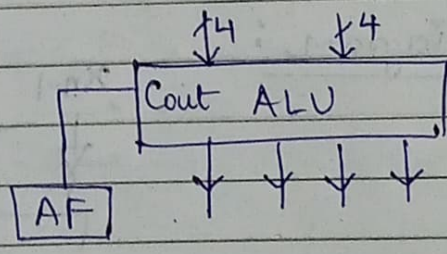 4 4
Cout ALU
AF